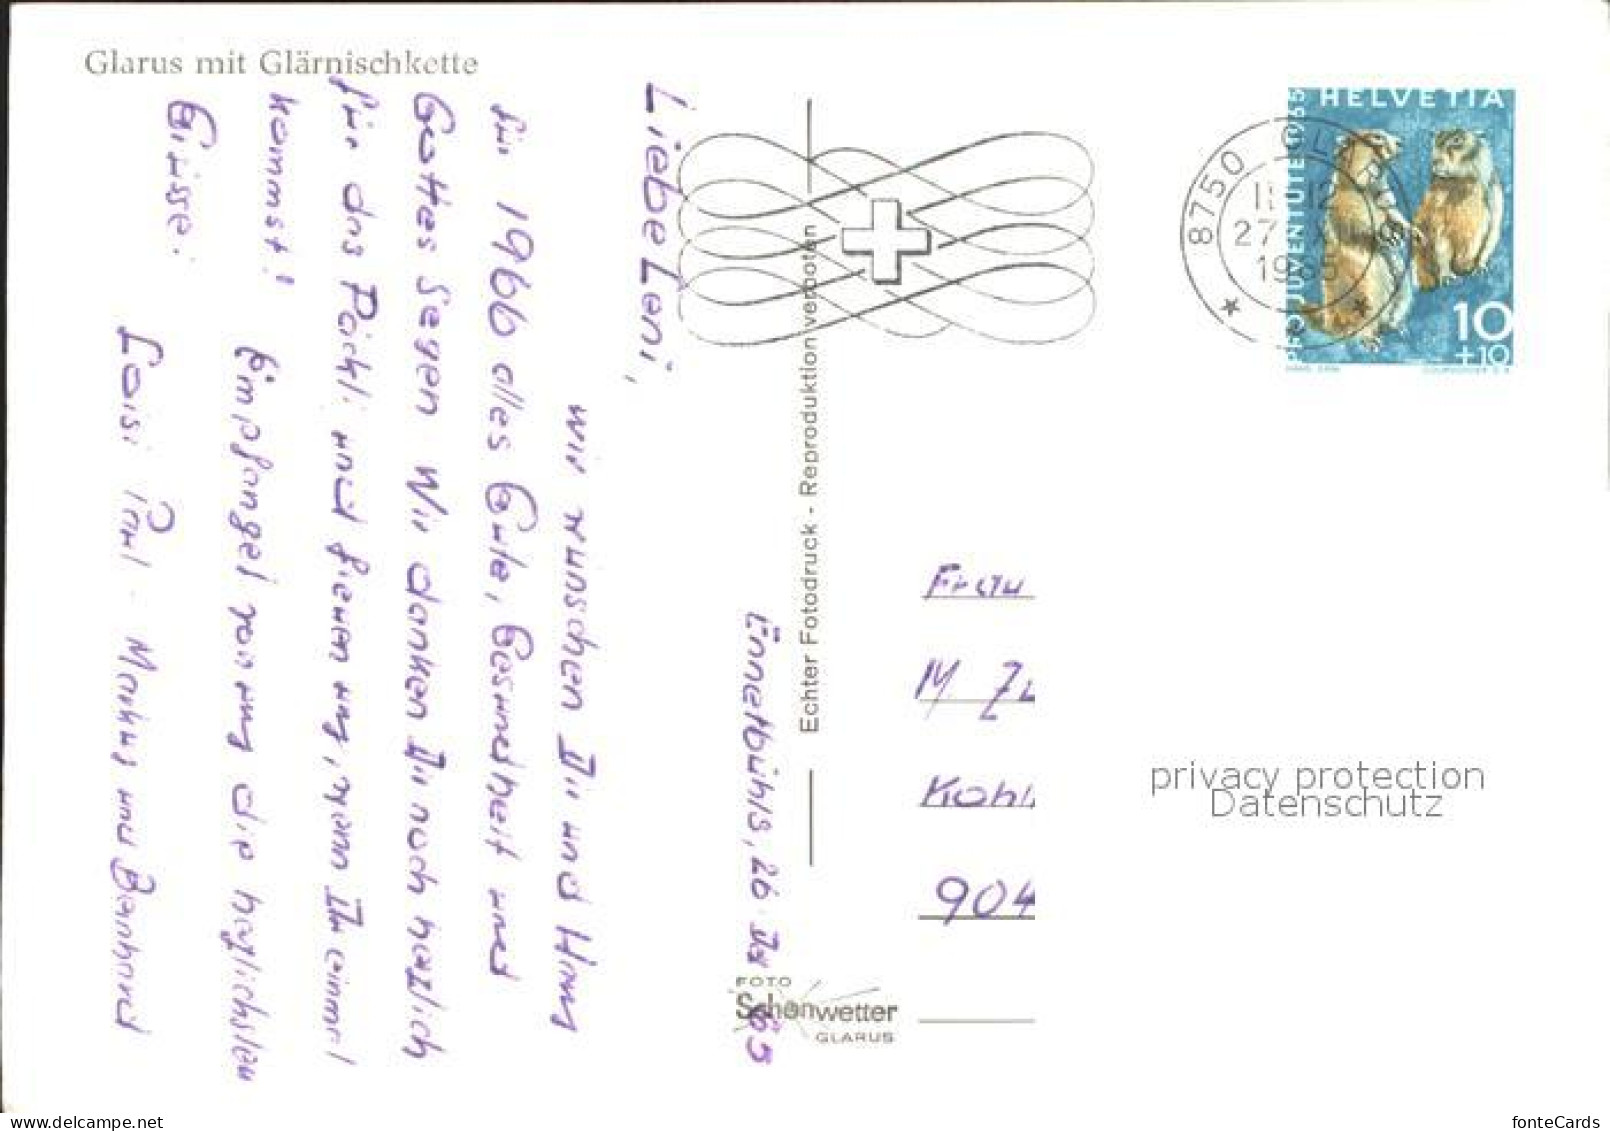 Glarus mit Glärnischkette
Ennetbühls, 26 Dez 65
Liebe Leni,
wir wünschen Dir und Hans
für 1966 alles Gute, Gesundheit und
Gottes Segen Wir danken Dir noch herzlich
für das Päckli und freuen uns, wenn Ihr einmal
kommst! Empfanget von uns die herzlichsten
Grüsse:
Loisi Paul - Markus und Bernhard
Echter Fotodruck - Reproduktion verboten
FOTO
Schönwetter
GLARUS
HELVETIA
PRO JUVENTUTE 1965
10
+10
8750 GL
27
1965
Frau
M Zu
Kohl
904
privacy protection
Datenschutz
delcampe.net
fonteCards